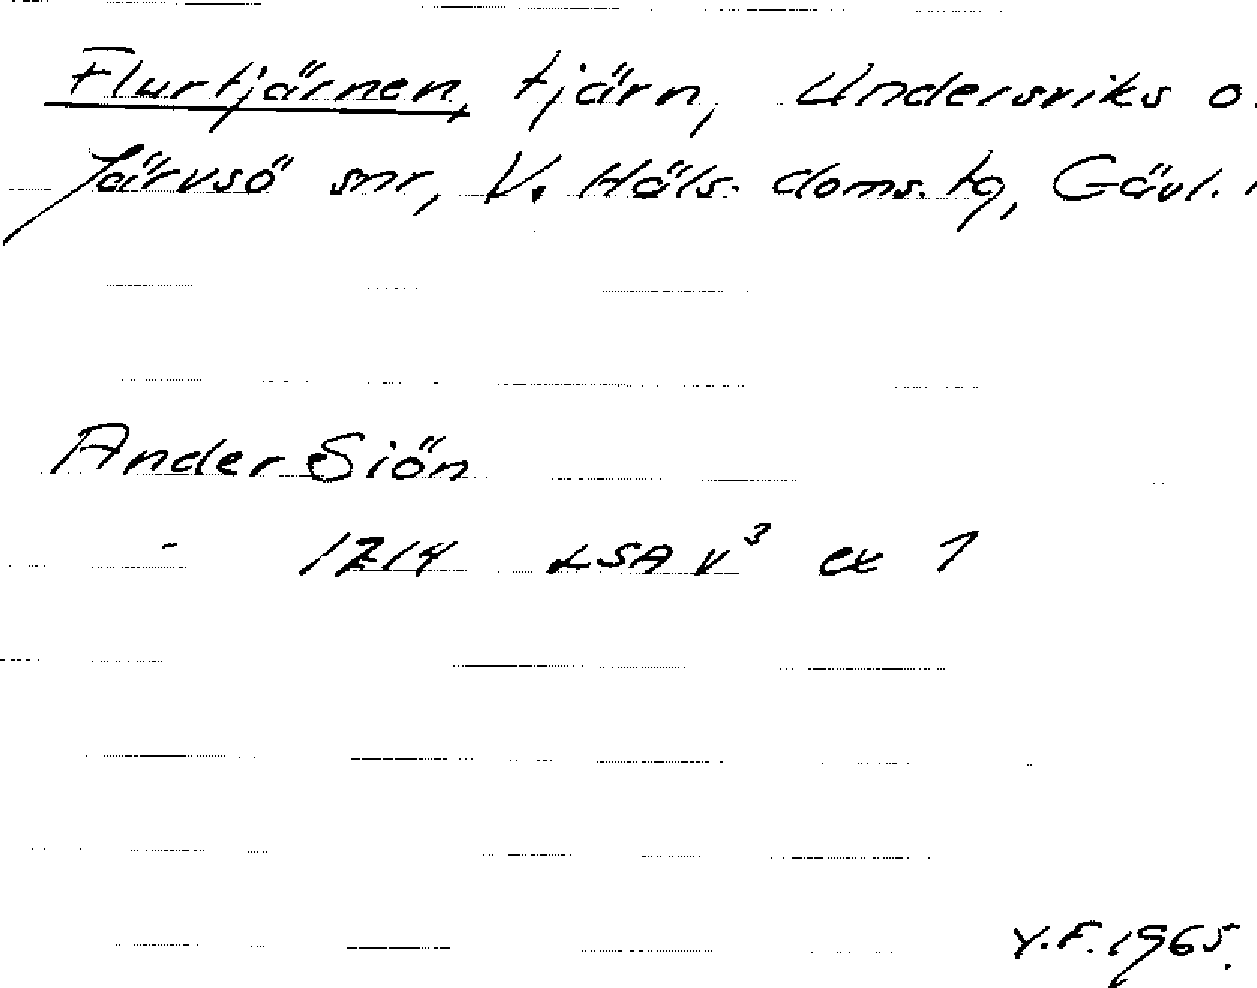 Flurtjärnen, tjärn, Undersviks o.
Järvsö snr, V. Häls. doms.tg, Gävl.
Ander Siön
- 1714 LSA V³ ex 1
Y.F. 1965.